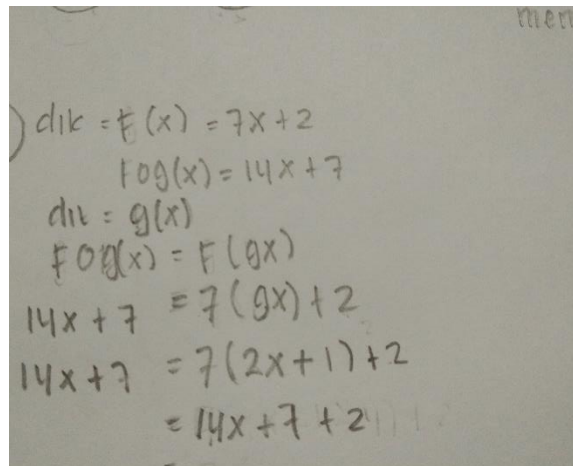 men
) dik = F(x) = 7x + 2
Fog(x) = 14x + 7
dit = g(x)
FOg(x) = F(gx)
14x + 7 = 7(gx) + 2
14x + 7 = 7(2x + 1) + 2
= 14x + 7 + 2